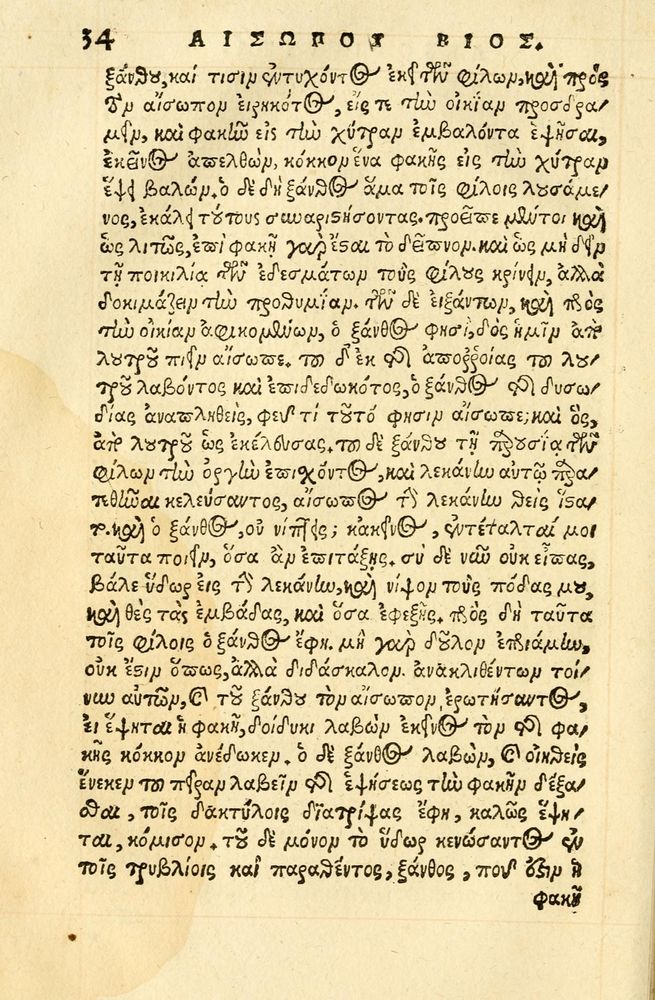 34 ΑΙΣΩΠΟΥ ΒΙΟΣ.
ξάνθου, καί τισιν ἐντυχόντος ἐκεῖ τῶν φίλων, καὶ πρὸς
τὸν αἴσωπον εἰρηκότος, εἴς τε τὴν οἰκίαν προσδρα-
μεῖν, καὶ φακὴν εἰς τὴν χύτραν ἐμβαλόντα ἑψῆσαι,
ἐκεῖνος ἀπελθὼν, κόκκον ἕνα φακῆς εἰς τὴν χύτραν
ἕψει βαλών. ὁ δὲ δὴ ξάνθος ἅμα τοῖς φίλοις λουσάμε-
νος, ἐκάλει τούτους συναριστήσοντας. προεῖπε μέντοι καὶ
ὡς λιτῶς, ἐπὶ φακῇ γὰρ ἔσται τὸ δεῖπνον. καὶ ὡς μὴ δεῖν
τῇ ποικιλίᾳ τῶν ἐδεσμάτων τοὺς φίλους κρίνειν, ἀλλὰ
δοκιμάζειν τὴν προθυμίαν. τῶν δὲ εἰξάντων, καὶ πρὸς
τὴν οἰκίαν ἀφικομένων, ὁ ξάνθος φησί, δὸς ἡμῖν ἀπὸ
λουτροῦ πιεῖν αἴσωπε. τοῦ δ' ἐκ τῆς ἀποῤῥοίας τοῦ λου-
τροῦ λαβόντος καὶ ἐπιδεδωκότος, ὁ ξάνθος τῆς δυσω-
δίας ἀναπλησθεὶς, φεῦ τί τοῦτό φησιν αἴσωπε; καὶ ὃς,
ἀπὸ λουτροῦ ὡς ἐκέλευσας. τοῦ δὲ ξάνθου τῇ παρουσίᾳ τῶν
φίλων τὴν ὀργὴν ἐπισχόντος, καὶ λεκάνην αὐτῷ παρα-
τεθῆναι κελεύσαντος, αἴσωπος τὴν λεκάνην θεὶς ἵστα-
το. καὶ ὁ ξάνθος, οὐ νίπτεις; κἀκεῖνος, ἐντέταλταί μοι
ταῦτα ποιεῖν, ὅσα ἂν ἐπιτάξῃς. σὺ δὲ νῦν οὐκ εἶπας,
βάλε ὕδωρ εἰς τὴν λεκάνην, καὶ νίψον τοὺς πόδας μου,
καὶ θὲς τὰς ἐμβάδας, καὶ ὅσα ἐφεξῆς. πρὸς δὴ ταῦτα
τοῖς φίλοις ὁ ξάνθος ἔφη. μὴ γὰρ δοῦλον ἐπριάμην,
οὐκ ἔστιν ὅπως, ἀλλὰ διδάσκαλον. ἀνακλιθέντων τοί-
νυν αὐτῶν, καὶ τοῦ ξάνθου τὸν αἴσωπον ἐρωτήσαντος,
εἰ ἕψηται ἡ φακῆ, δοίδυκι λαβὼν ἐκεῖνος τὸν τῆς φα-
κῆς κόκκον ἀνέδωκεν. ὁ δὲ ξάνθος λαβὼν, καὶ οἰηθεὶς
ἕνεκεν τοῦ πεῖραν λαβεῖν τῆς ἑψήσεως τὴν φακῆν δέξα-
σθαι, τοῖς δακτύλοις διατρίψας ἔφη, καλῶς ἕψη-
ται, κόμισον. τοῦ δὲ μόνον τὸ ὕδωρ κενώσαντος ἐν
τοῖς τρυβλίοις καὶ παραθέντος, ξάνθος, ποῦ ἐστιν ἡ
φακῆ